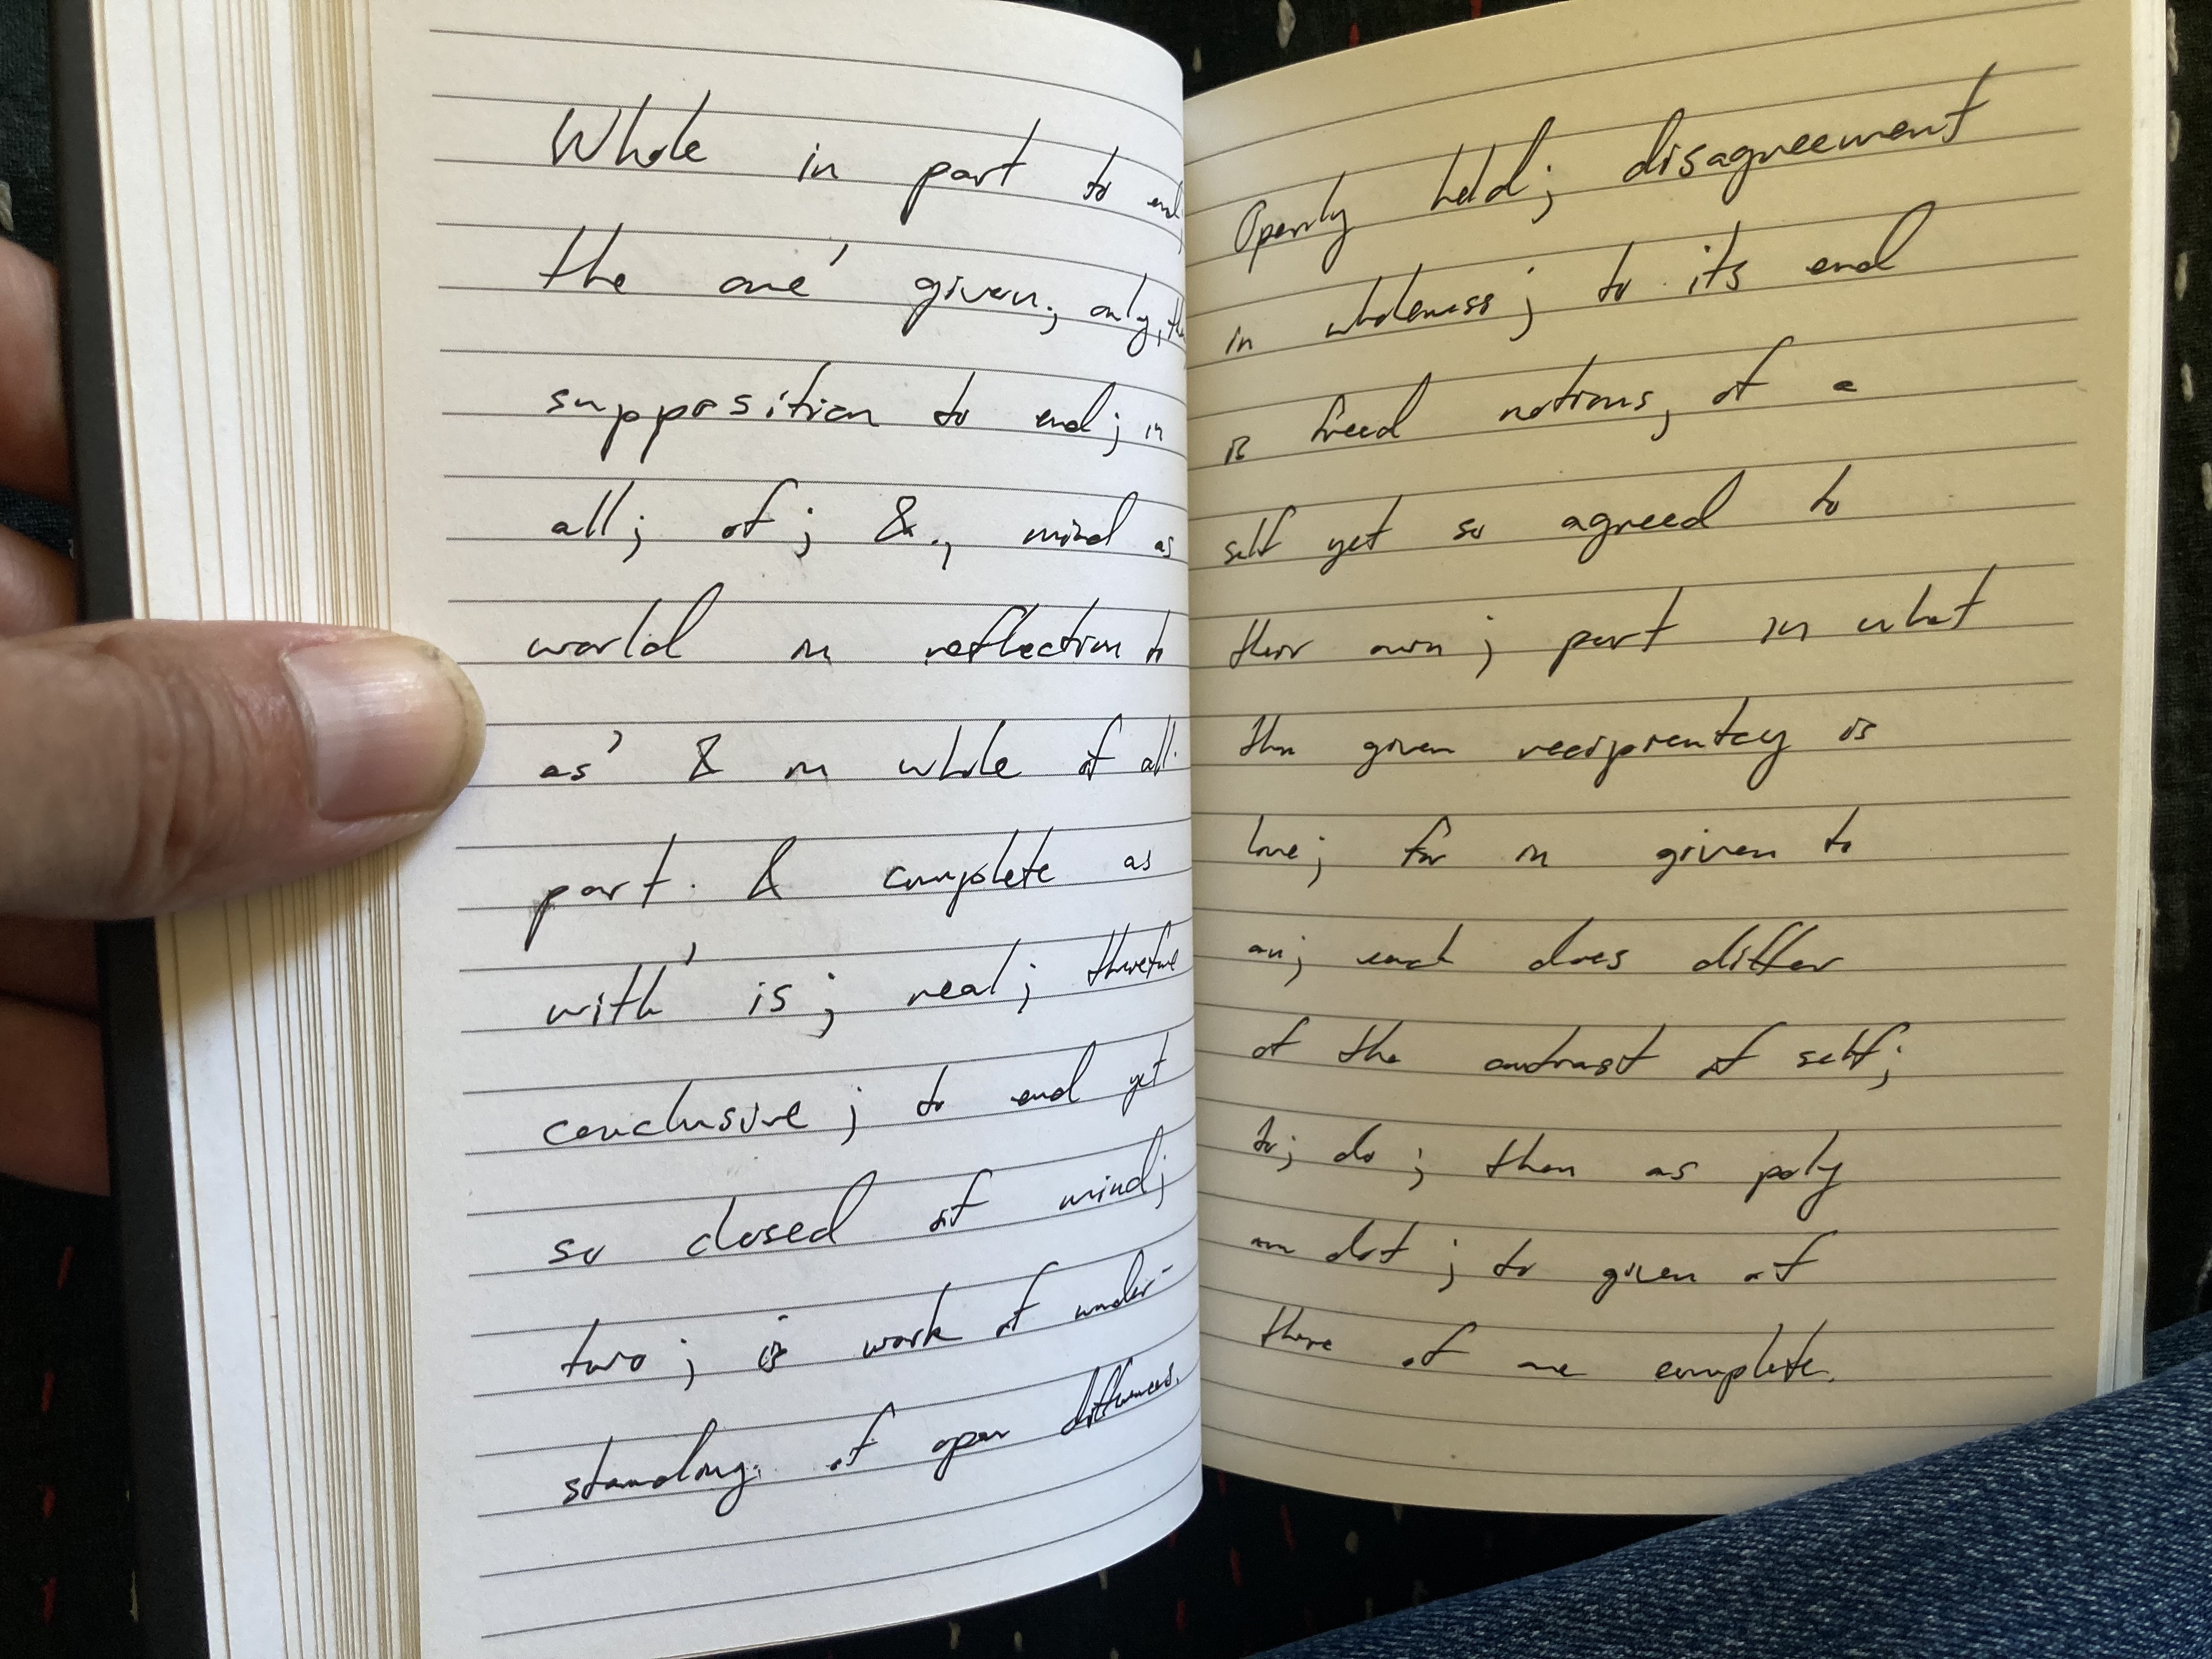 Whole in part to end,
the one' given; only, the
supposition to end; in
all; of; &., mind as
world in reflection to
as' & in whole of all.
part. & complete as
with' is; real; therefore
conclusive; to end yet
so closed of mind;
two; is work of under-
standing. of open differences.
Openly held; disagreement
in wholeness; to its end
is freed notions, of a
self yet so agreed to
their own; part in what
then given recipientcy is
love; for in given to
an; each does differ
of the contrast of self;
to; do; then as poly
am dot; to given of
there of one complete.